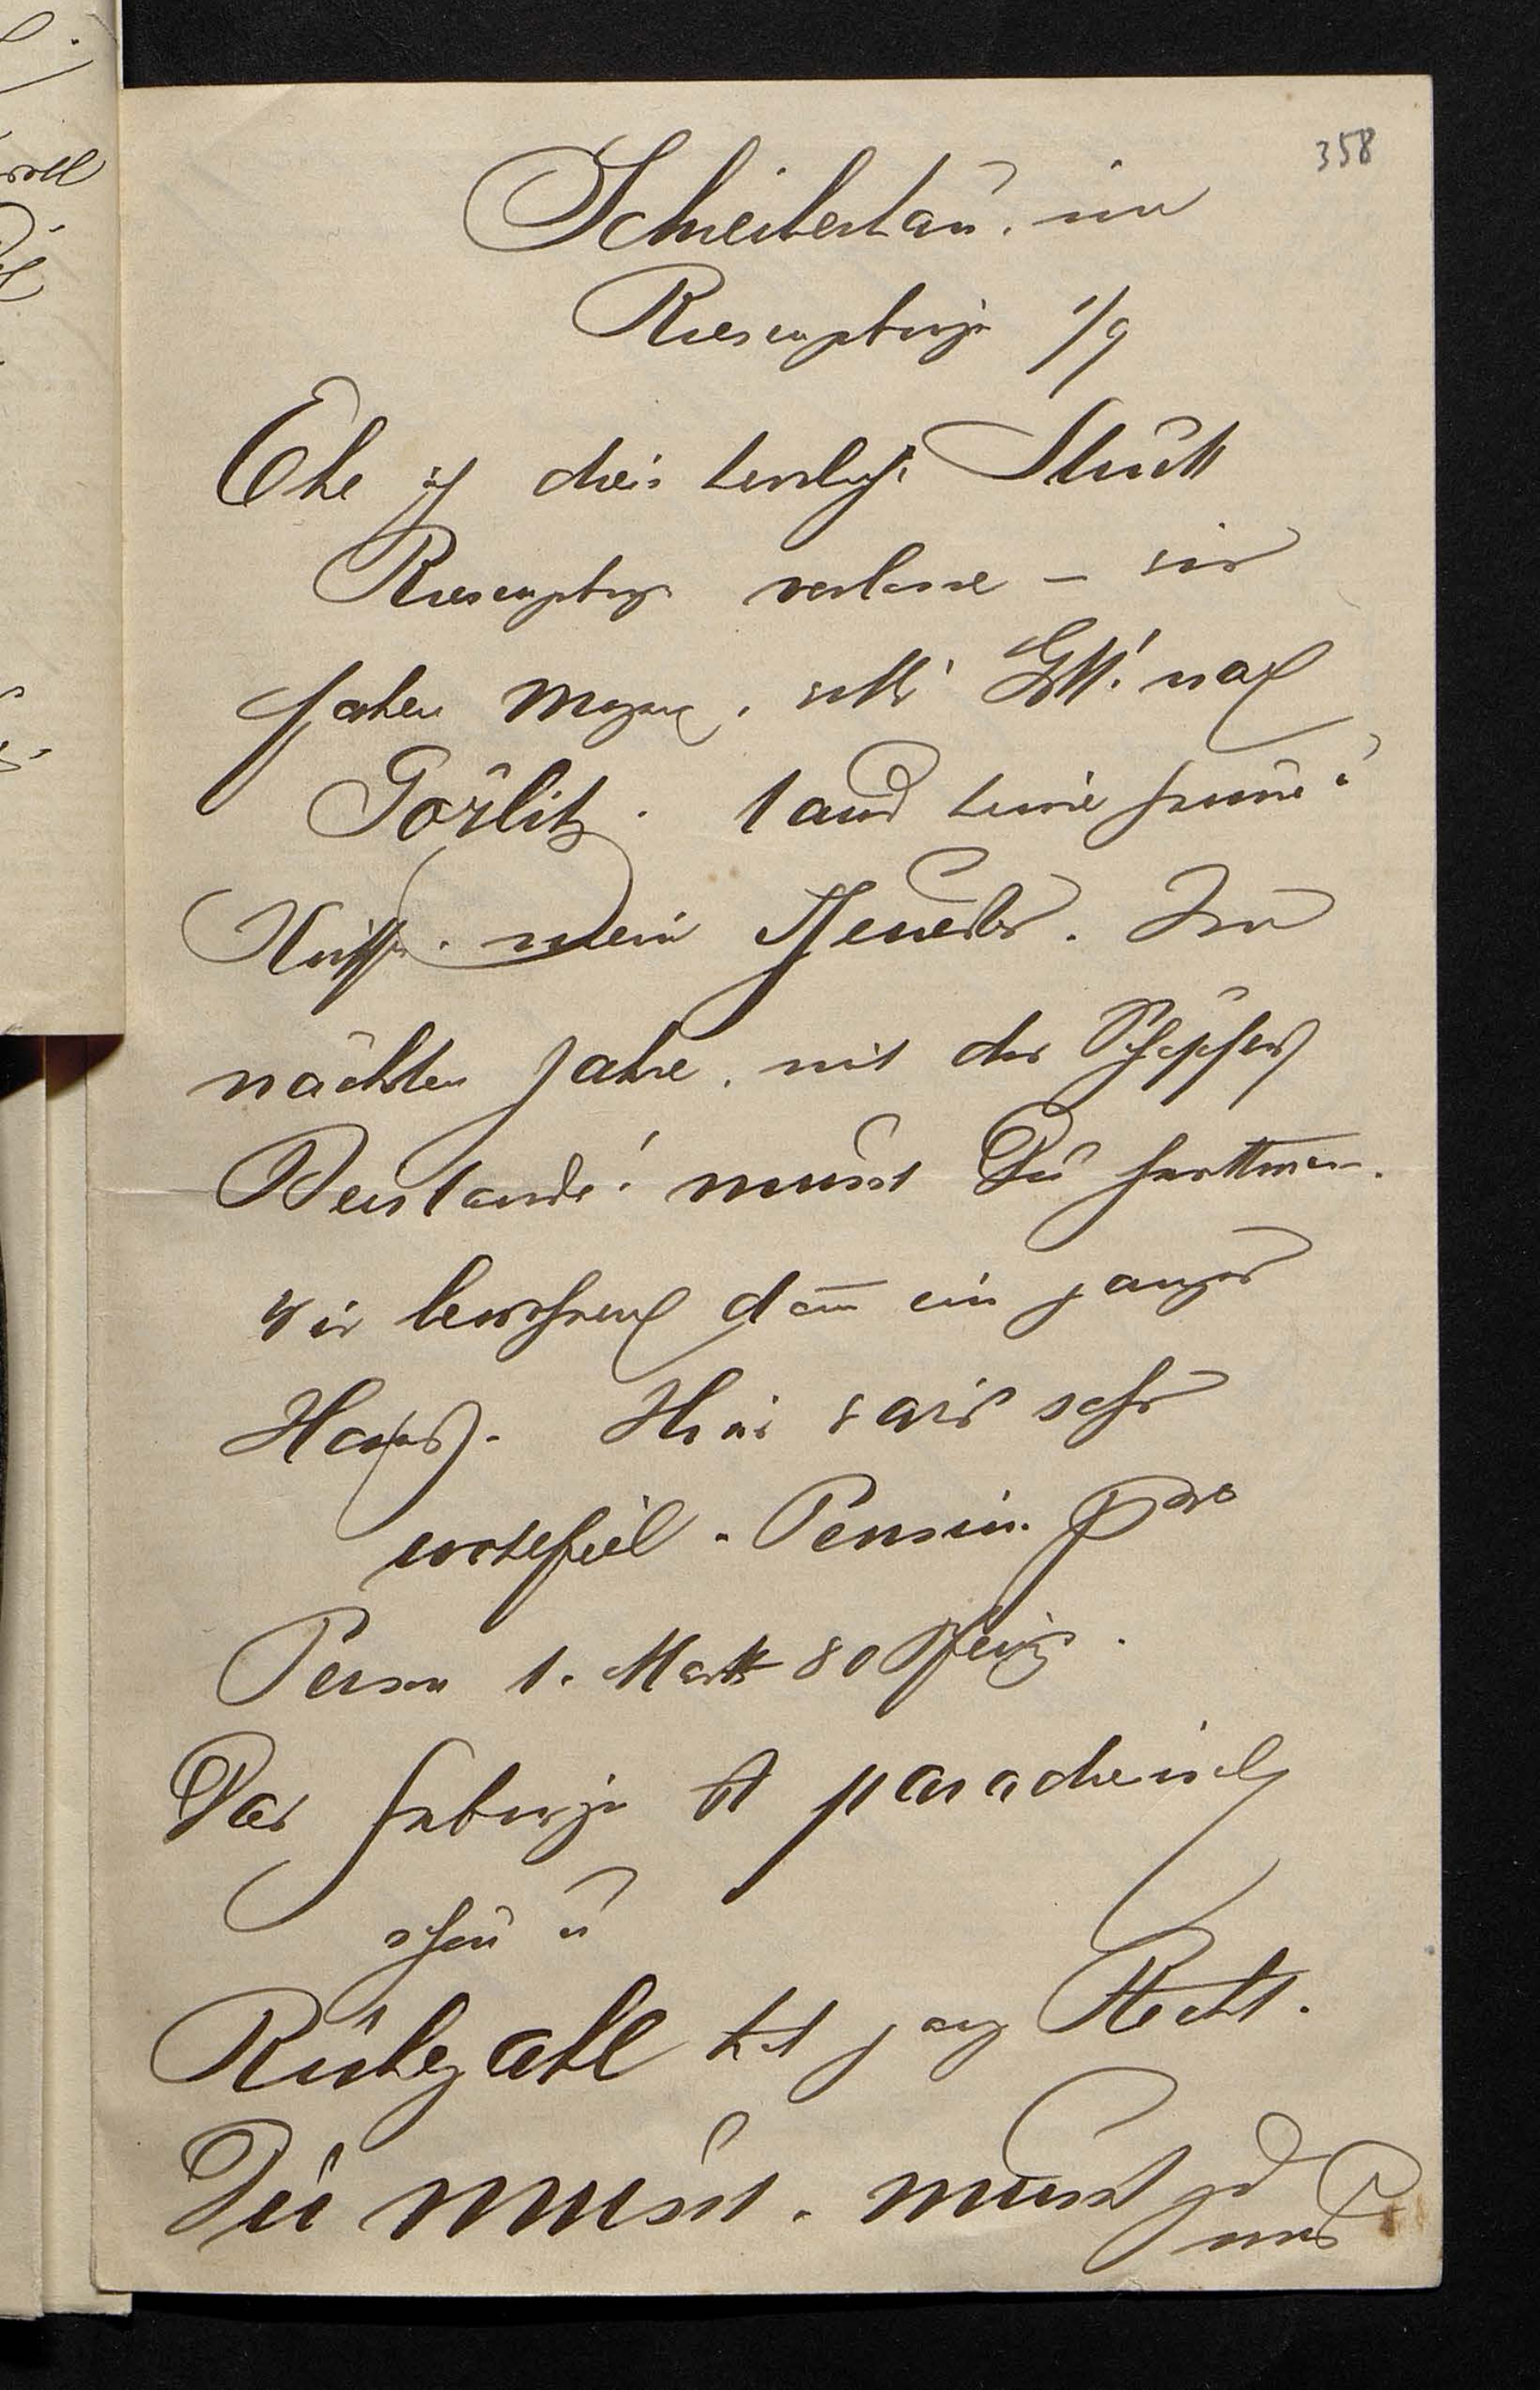 358
Schreiberhau, im
Riesengebirge 1/9
Ehe ich dies herrliche Stück
Riesengebirge verlasse – wir
fahren morgen, will's Gott! nach
Görlitz.
mein Im
nächsten Jahre, mit des Schöpfers
Beistande! musst Du herkommen.
Wir bewohnen dann ein ganzes
Haus. Hier wars sehr
wohlfeil. Pension pro
Person 1. Mark 80 Pfenig.
Das Gebirge ist paradiesisch
schön u
Rübezahl hat ganz Recht.
Du musst. musst
uns